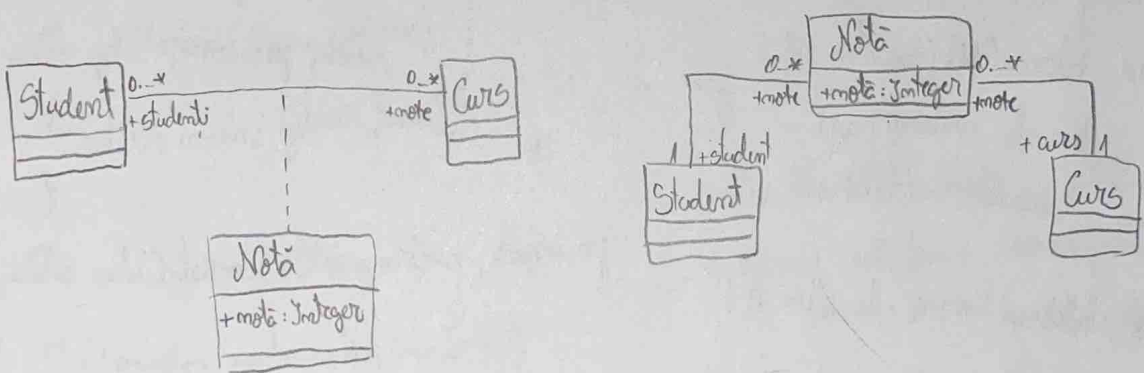 Student
0..*
+studenti
0..*
+note
Curs
Notă
+notă: Integer
Notă
+notă: Integer
0..*
+note
0..*
+note
1
+student
Student
+curs
1
Curs